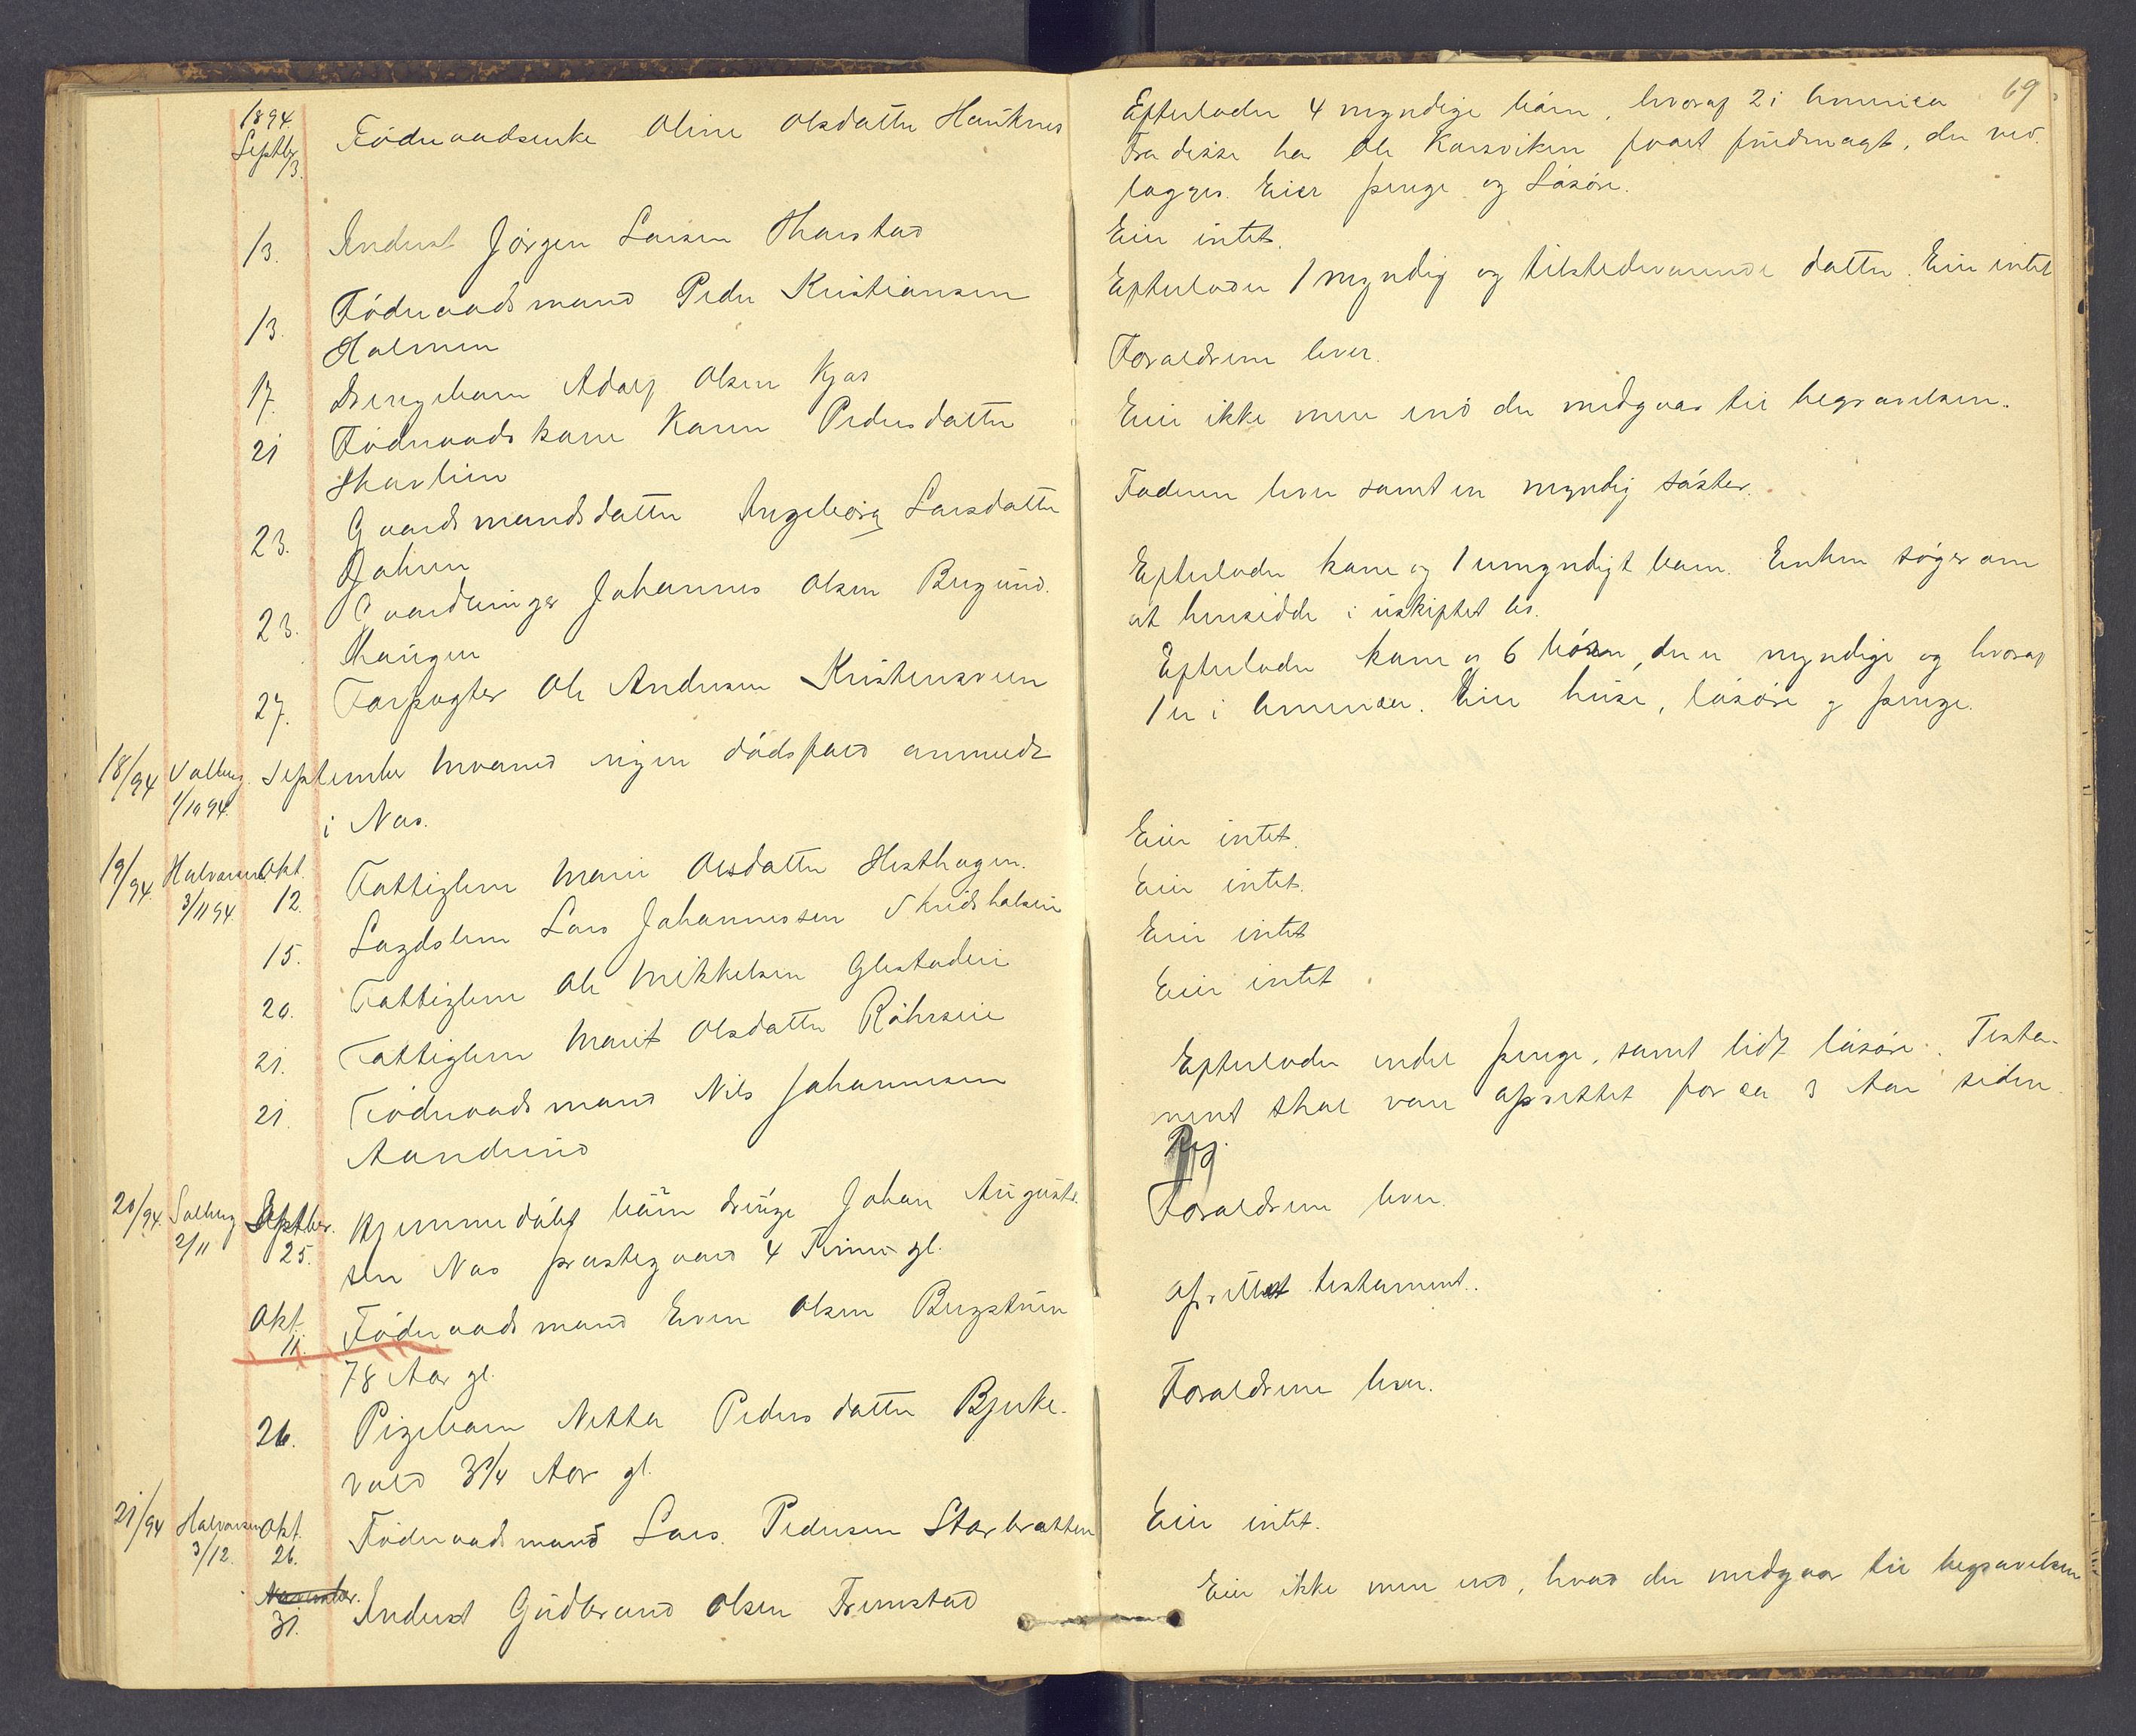 1894.
Septbr
13. Föderaadsenke Oline Olsdatter Hauknes
13. Inderst Jörgen Larsen Tharstad
13. Föderaadsmand Peder Kristiansen
Holmen
17. Drengebarn Adolf Olsen Kjos
21 Föderaadskone Karen Pedersdatter
Skarlien
23. Gaardmandsdatter Ingeborg Larsdatter
23. Gaardbruger Johannes Olsen Bergund.
haugen
27. Forpagter Ole Andersen Kristensveen
18/94 Solberg. September Maaned ingen dödsfald anmeldt
1/10 94. i Nes.
19/94. Halvorsen Okt.
3/11 94. 12. Fattiglem Marie Olsdatter Hesthagen.
15. Lægdslem Lars Johannessen Skridshalsen
20. Fattiglem Ole Mikkelsen Glestadeie
21. Fattiglem Marit Olsdatter Röhrseie
21. Föderaadsmand Nils Johannesen
Aanderud
20/94. Solberg Septber.
2/11 25. Hjemmedöbt barn drenge Johan August-
sen Nes prestegaard 4 Timer gl.
Okt.
11. Föderaadsmand Even Olsen Bergstuen
78 Aar gl.
26. Pigebarn Netta Pedersdatter Bjerke-
vold 3 3/4 Aar gl.
21/94 Halvorsen Okt.
3/12. 26. Föderaadsmand Lars Pedersen Storbraatten
November.
31. Inderst Gudbrand Olsen Fremstad
69
Efterlader 4 myndige börn, hvoraf 2 i Amerika
Fra disse har Ole Korsviken faaet fuldmagt, der ved-
lægges. Eier penge og Lösöre.
Eier intet.
Efterlader 1 myndig og tilstedeværende datter. Eier intet
Forældrene lever.
Eier ikke mere end der medgaar til begravelsen.
Faderen lever samt en myndig söster.
Efterlader kone og 1 umyndigt barn. Enken söger om
at hensidde i uskiftet bo.
Efterlader kone og 6 börn, der er myndige og hvoraf
1 er i Amerika. Eier huse, lösöre og penge.
Eier intet.
Eier intet.
Eier intet
Eier intet
Efterlader endel penge, samt lidt lösöre. Testa-
ment skal være oprettet for ca 3 Aar siden.
Forældrene lever.
oprettet testament.
Forældrene lever.
Eier intet.
Eier ikke mere end, hvad der medgaar til begravelsen